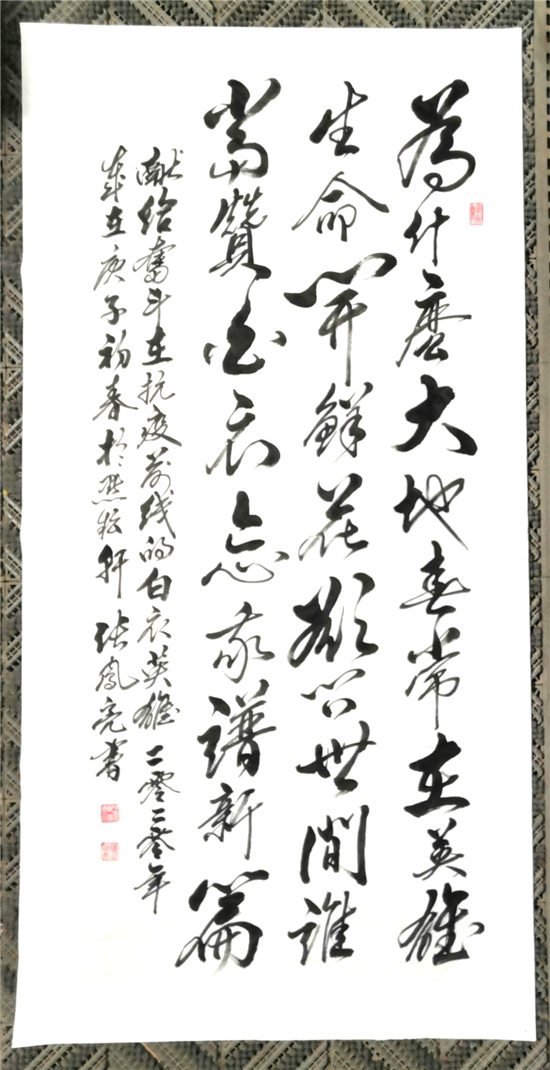 為什麼大地春常在英雄
生命開鮮花欲问世間誰
當贊白衣忘我譜新篇
献给奮斗在抗疫前线的白衣英雄二零二零年
歲在庚子初春於耘軒張鳳亮書